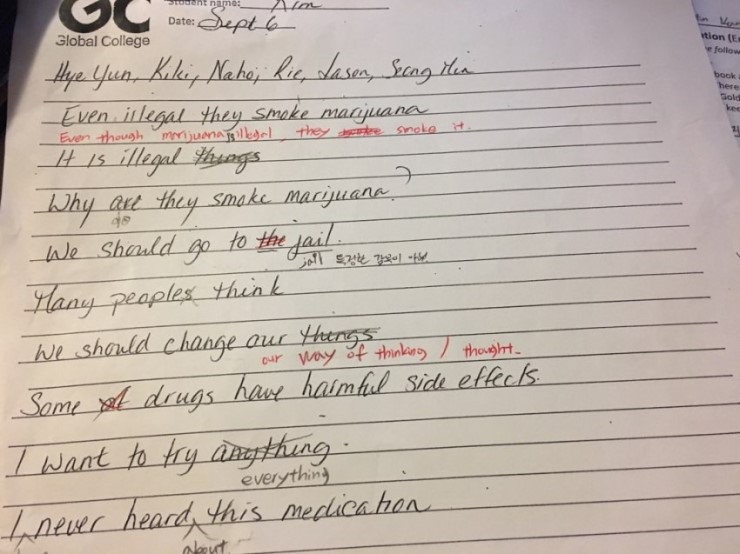 GC
Global College
Student name:
Date: Sept 6
Hye Yun, Kiki, Naho, Rie, Jason, Seung Hun
Even illegal they smoke marijuana
Even though marijuana is illegal, they smoke it.
It is illegal things
Why are they smoke marijuana?
do
We should go to the jail.
jail 특정한 감옥이 아님
Many peoples think
We should change our things
our way of thinking / thought.
Some of drugs have harmful side effects.
I want to try anything.
everything
I never heard this medication
about